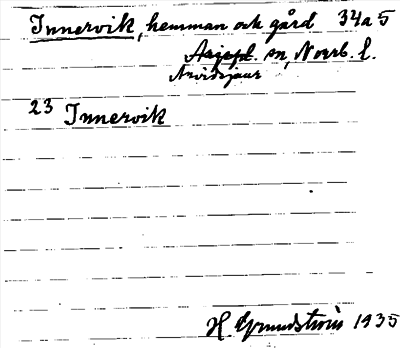 Innervik, hemman och gård 34a5
Asjepl. sn, Norrb. l.
Arvidsjaur
23 Innervik
H. Grundström 1935